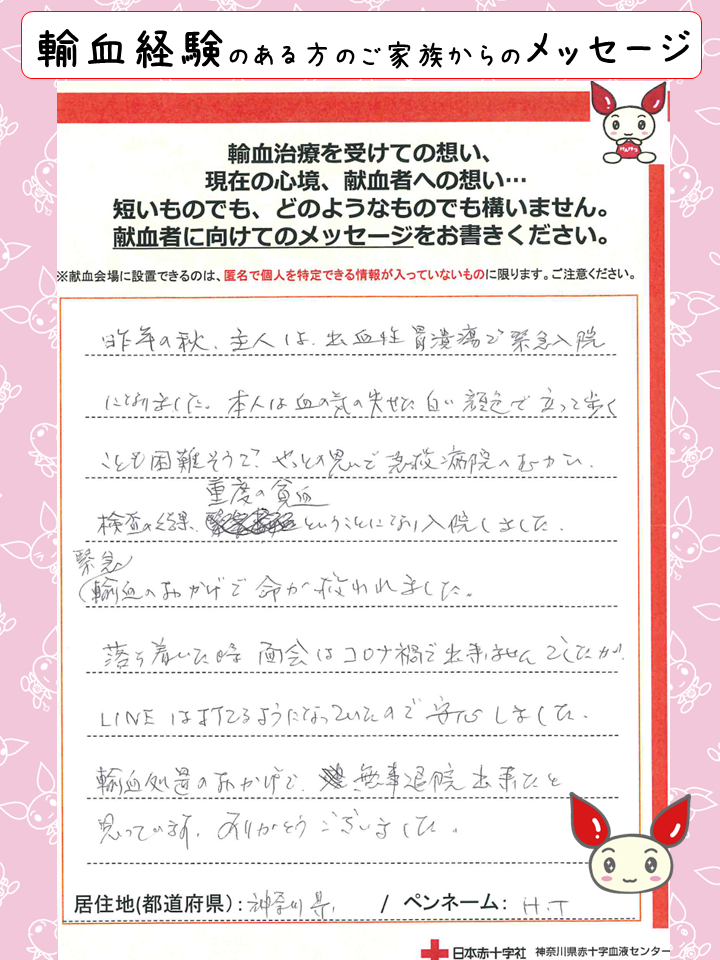 輸血経験のある方のご家族からのメッセージ
けんけつ
輸血治療を受けての想い、
現在の心境、献血者への想い…
短いものでも、どのようなものでも構いません。
献血者に向けてのメッセージをお書きください。
※献血会場に設置できるのは、匿名で個人を特定できる情報が入っていないものに限ります。ご注意ください。
昨年の秋、主人は、出血性胃潰瘍で緊急入院
になりました。本人は血の気の失せた白い顔色で立って歩く
ことも困難そうで、やっとの思いで救急病院へむかい、
重度の貧血
検査の結果、ということになり入院しました。
緊急
輸血のおかげで命が救われました。
落ち着いた時 面会はコロナ禍で出来ませんでしたが、
LINEは打てるようになっていたので安心しました。
輸血処置のおかげで、無事退院出来たと
思っています。ありがとうございました。
居住地(都道府県):神奈川県 / ペンネーム: H.T
日本赤十字社 神奈川県赤十字血液センター